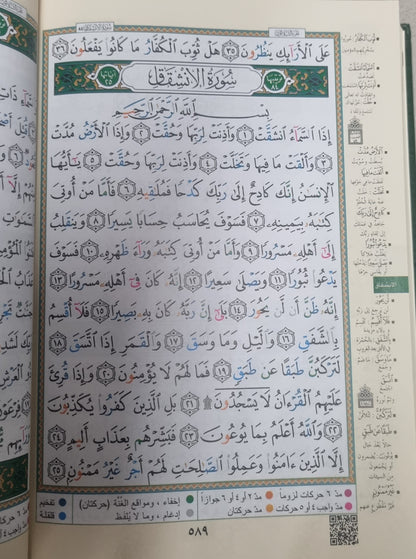 عَلَى الْأَرَائِكِ يَنظُرُونَ ٣٥ هَلْ ثُوِّبَ الْكُفَّارُ مَا كَانُوا يَفْعَلُونَ ٣٦
سُورَةُ الانْشِقَاقِ
بِسْمِ اللَّهِ الرَّحْمَٰنِ الرَّحِيمِ
إِذَا السَّمَاءُ انشَقَّتْ ١ وَأَذِنَتْ لِرَبِّهَا وَحُقَّتْ ٢ وَإِذَا الْأَرْضُ مُدَّتْ
٣ وَأَلْقَتْ مَا فِيهَا وَتَخَلَّتْ ٤ وَأَذِنَتْ لِرَبِّهَا وَحُقَّتْ ٥ يَٰأَيُّهَا
الْإِنسَٰنُ إِنَّكَ كَادِحٌ إِلَىٰ رَبِّكَ كَدْحًا فَمُلَٰقِيهِ ٦ فَأَمَّا مَنْ أُوتِيَ
كِتَٰبَهُ بِيَمِينِهِ ٧ فَسَوْفَ يُحَاسَبُ حِسَابًا يَسِيرًا ٨ وَيَنقَلِبُ
إِلَىٰ أَهْلِهِ مَسْرُورًا ٩ وَأَمَّا مَنْ أُوتِيَ كِتَٰبَهُ وَرَاءَ ظَهْرِهِ ١٠ فَسَوْفَ
يَدْعُوا ثُبُورًا ١١ وَيَصْلَىٰ سَعِيرًا ١٢ إِنَّهُ كَانَ فِي أَهْلِهِ مَسْرُورًا ١٣
إِنَّهُ ظَنَّ أَن لَّن يَحُورَ ١٤ بَلَىٰ إِنَّ رَبَّهُ كَانَ بِهِ بَصِيرًا ١٥ فَلَا أُقْسِمُ
بِالشَّفَقِ ١٦ وَالَّيْلِ وَمَا وَسَقَ ١٧ وَالْقَمَرِ إِذَا اتَّسَقَ ١٨
لَتَرْكَبُنَّ طَبَقًا عَن طَبَقٍ ١٩ فَمَا لَهُمْ لَا يُؤْمِنُونَ ٢٠ وَإِذَا قُرِئَ
عَلَيْهِمُ الْقُرْءَانُ لَا يَسْجُدُونَ ۩ ٢١ بَلِ الَّذِينَ كَفَرُوا يُكَذِّبُونَ
٢٢ وَاللَّهُ أَعْلَمُ بِمَا يُوعُونَ ٢٣ فَبَشِّرْهُم بِعَذَابٍ أَلِيمٍ ٢٤
إِلَّا الَّذِينَ ءَامَنُوا وَعَمِلُوا الصَّٰلِحَٰتِ لَهُمْ أَجْرٌ غَيْرُ مَمْنُونٍ ٢٥
مدّ ٦ حركات لزوماً مدّ ٢ أو ٤ أو ٦ جوازاً إخفاء، ومواقع الغُنَّة (حركتان) تفخيم
مدّ واجب ٤ أو ٥ حركات مدّ حركتان إدغام، وما لا يُلفَظ قلقلة
٥٨٩